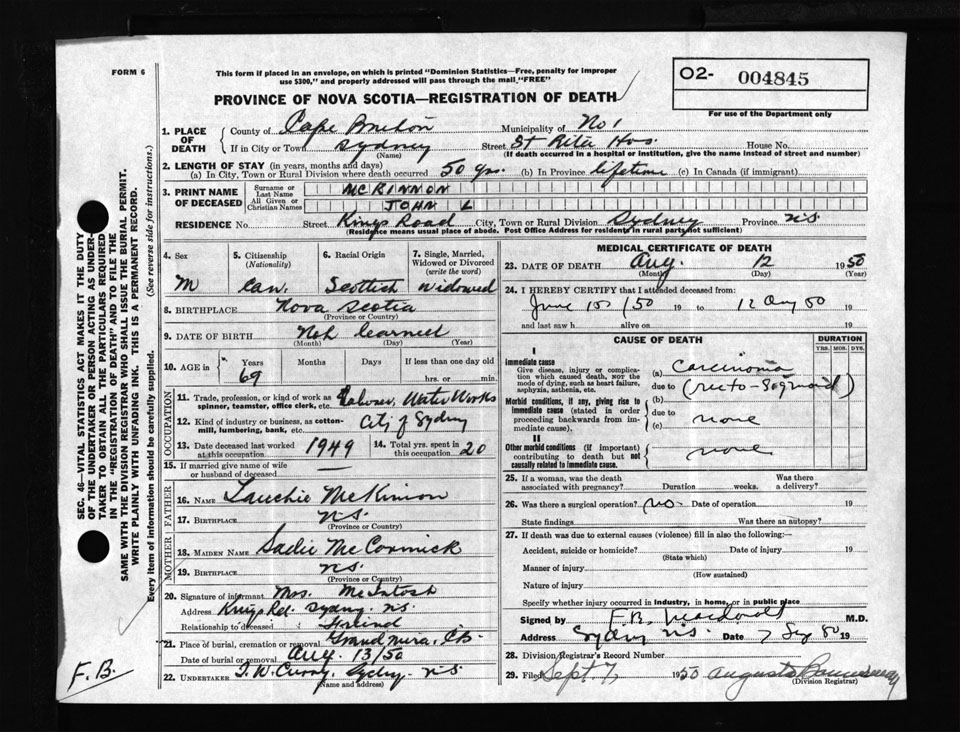 FORM 6
This form if placed in an envelope, on which is printed "Dominion Statistics—Free, penalty for improper
use $300," and properly addressed will pass through the mail "FREE"
PROVINCE OF NOVA SCOTIA—REGISTRATION OF DEATH
O2- 004845
For use of the Department only
1. PLACE OF DEATH
County of Cape Breton Municipality of No 1
If in City or Town Sydney Street St Rita Hos. House No.
(Name) (If death occurred in a hospital or institution, give the name instead of street and number)
2. LENGTH OF STAY (in years, months and days)
(a) In City, Town or Rural Division where death occurred 50 yrs. (b) In Province lifetime (c) In Canada (if immigrant)
3. PRINT NAME OF DECEASED
Surname or Last Name MCKINNON
All Given or Christian Names JOHN L
RESIDENCE No. Street Kings Road City, Town or Rural Division Sydney Province N.S
(Residence means usual place of abode. Post Office Address for residents in rural parts not sufficient)
4. Sex M
5. Citizenship (Nationality) Can.
6. Racial Origin Scottish
7. Single, Married, Widowed or Divorced (write the word) Widowed
8. BIRTHPLACE Nova Scotia
(Province or Country)
9. DATE OF BIRTH Not learned
(Month) (Day) (Year)
10. AGE in Years 69 Months Days If less than one day old
hrs. or min.
OCCUPATION
11. Trade, profession, or kind of work as spinner, teamster, office clerk, etc. Labourer, Water Works
12. Kind of industry or business, as cotton-mill, lumbering, bank, etc. City of Sydney
13. Date deceased last worked at this occupation 1949
14. Total yrs. spent in this occupation 20
15. If married give name of wife or husband of deceased —
FATHER
16. NAME Lauchie McKinnon
17. BIRTHPLACE N.S.
(Province or Country)
MOTHER
18. MAIDEN NAME Sadie McCormick
19. BIRTHPLACE N.S.
(Province or Country)
20. Signature of informant Mrs. McIntosh
Address Kings Rd. Sydney. N.S.
Relationship to deceased Freind
21. Place of burial, cremation or removal Grand Mira, C.B.
Date of burial or removal Aug. 13/50
22. UNDERTAKER T.W. Curry, Sydney. N.S
(Name and address)
MEDICAL CERTIFICATE OF DEATH
23. DATE OF DEATH Aug. 12 1950
(Month) (Day) (Year)
24. I HEREBY CERTIFY that I attended deceased from:
June 15/50 19 to 12 Aug 50 19
and last saw h alive on 19
CAUSE OF DEATH
DURATION
YRS. MOS. DYS.
I
Immediate cause
Give disease, injury or complication which caused death, not the mode of dying, such as heart failure, asphyxia, asthenia, etc.
(a) Carcinoma
due to (recto-sigmoid)
Morbid conditions, if any, giving rise to immediate cause (stated in order proceeding backwards from immediate cause).
(b)
due to
(c) none
II
Other morbid conditions (if important) contributing to death but not causally related to immediate cause.
none
25. If a woman, was the death associated with pregnancy? Duration weeks. Was there a delivery?
26. Was there a surgical operation? no Date of operation 19
State findings Was there an autopsy?
27. If death was due to external causes (violence) fill in also the following:—
Accident, suicide or homicide? Date of injury 19
(State which)
Manner of injury
(How sustained)
Nature of injury
Specify whether injury occurred in industry, in home, or in public place
Signed by F.R. Macdonald M.D.
Address Sydney N.S. Date 7 Sep 50 19
28. Division Registrar's Record Number
29. Filed Sept. 7, 1950
(Division Registrar)
SEC. 46—VITAL STATISTICS ACT MAKES IT THE DUTY
OF THE UNDERTAKER OR PERSON ACTING AS UNDERTAKER TO OBTAIN ALL THE PARTICULARS REQUIRED
IN THE "REGISTRATION OF DEATH" AND TO FILE THE
SAME WITH THE DIVISION REGISTRAR WHO SHALL ISSUE THE BURIAL PERMIT.
WRITE PLAINLY WITH UNFADING INK. THIS IS A PERMANENT RECORD.
Every item of information should be carefully supplied. (See reverse side for instructions.)
F.B.